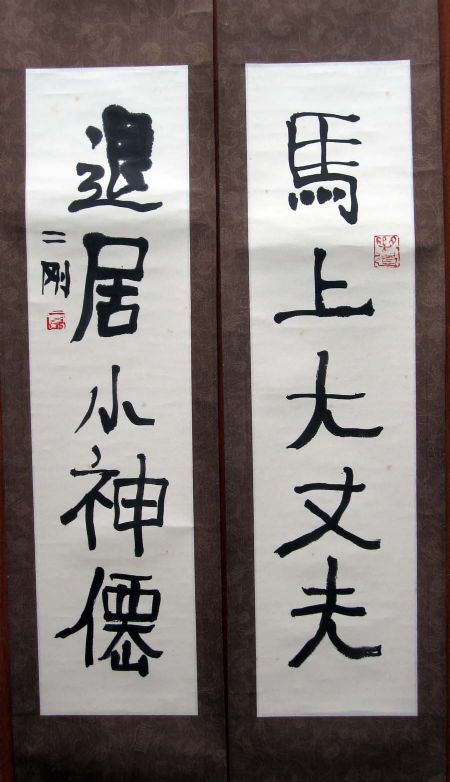 馬上大丈夫
退居小神僊
二剛